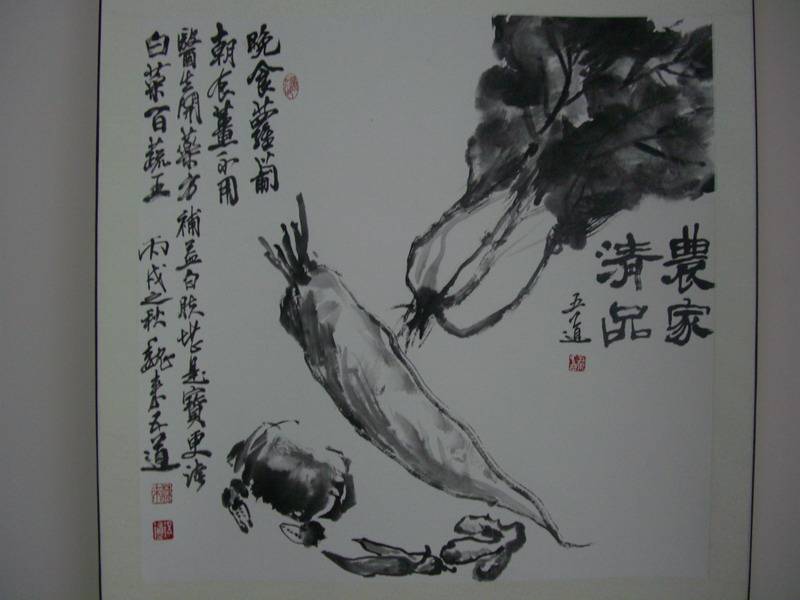 農家
清品
五道
晚食蘿蔔
朝食薑不用
醫生開藥方補益白是寶更
白菜百蔬王 丙戌之秋魏五道